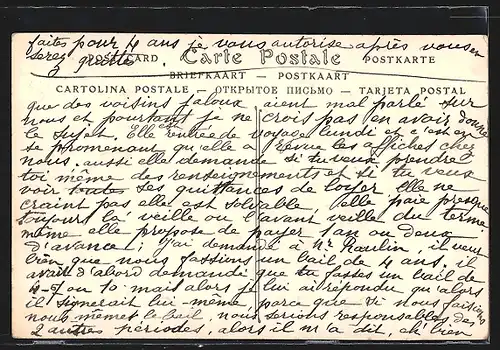 faites pour 4 ans je vous autorise après vous en
serez quitte
POST CARD Carte Postale POSTKARTE
BRIEFKAART — POSTKAART
CARTOLINA POSTALE — ОТКРЫТОЕ ПИСЬМО — TARJETA POSTAL
que des voisins jaloux aient mal parlé sur
nous et pourtant je ne crois pas en avoir donné
le sujet. Elle est rentrée de voyage lundi et c'est en
se promenant qu'elle a revue les affiches chez
nous. aussi elle demande si tu veux prendre
toi même des renseignements et si tu veux
voir toutes ses quittances de loyer elle ne
craint pas elle est solvable elle paie presque
toujours la veille ou l'avant veille du terme
même elle propose de payer 1 an ou deux
d'avance; j'ai demandé à Mr Raulin, il veut
bien que nous fassions un bail de 4 ans, il
avait d'abord demandé que tu fasses un bail de
4-5 ou 10 mais alors je lui ai répondu qu'alors
il signerait lui-même, parce que si nous faisions
nous même le bail, nous serions responsables des
2 autres périodes, alors il m'a dit, eh bien